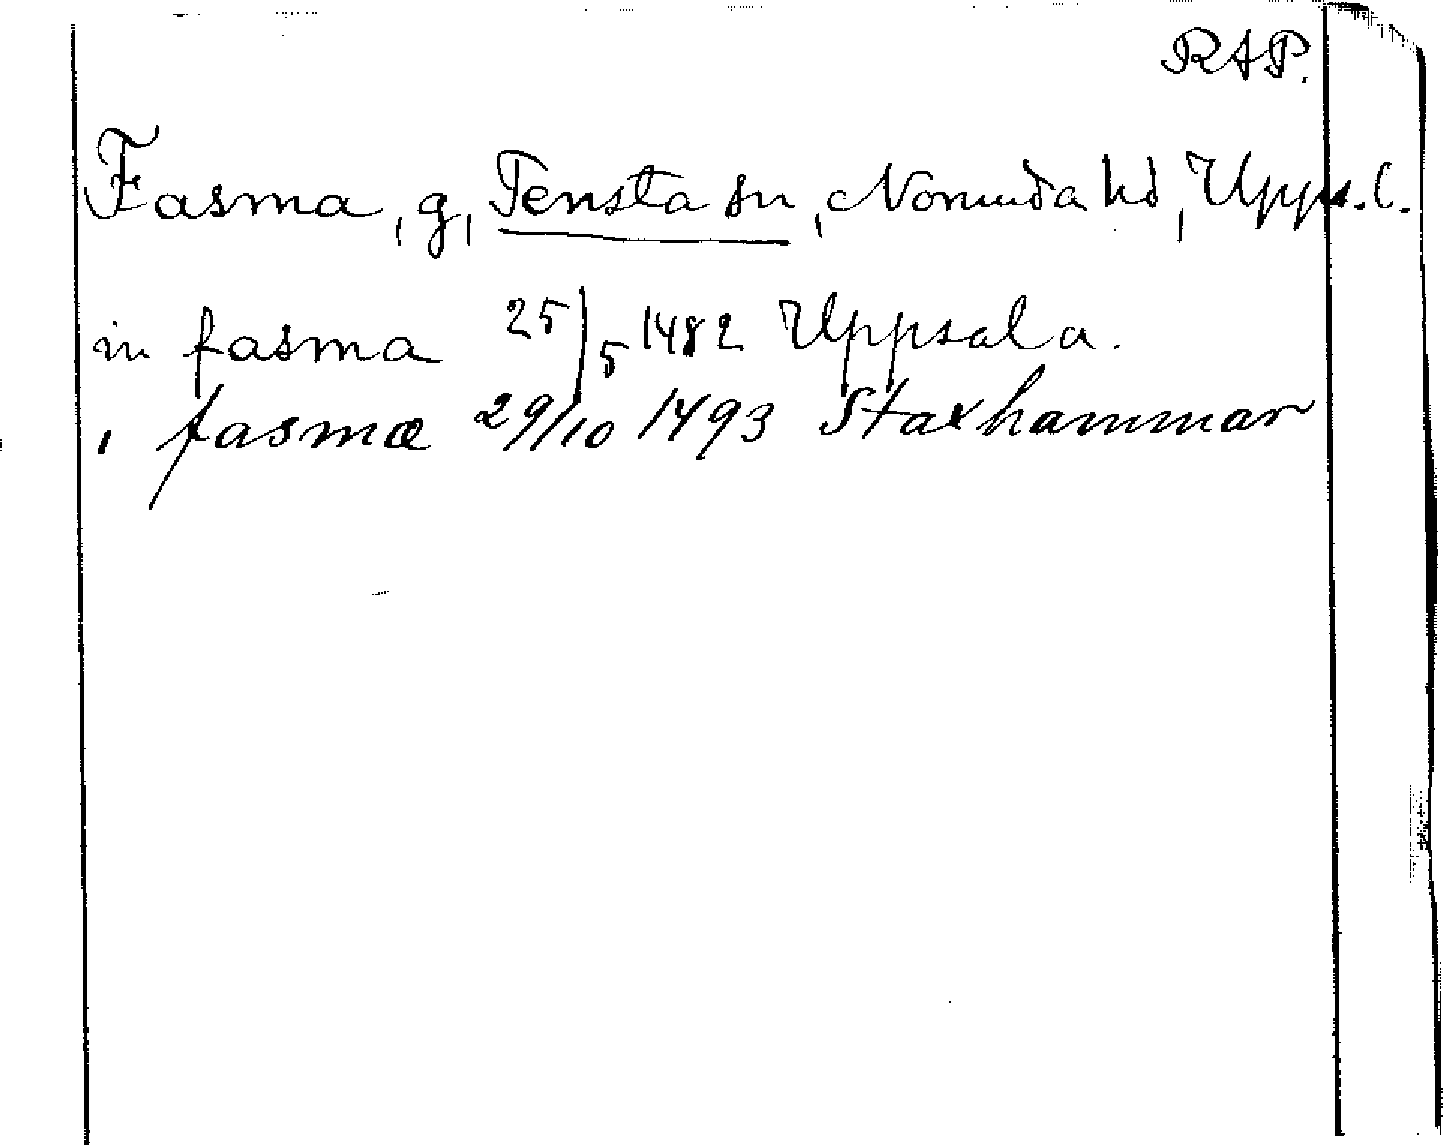 RAP.
Fasma, g, Tensta sn, Norunda hd, Upps. l.
in fasma 25/5 1482 Uppsala.
i fasmæ 29/10 1493 Staxhammar